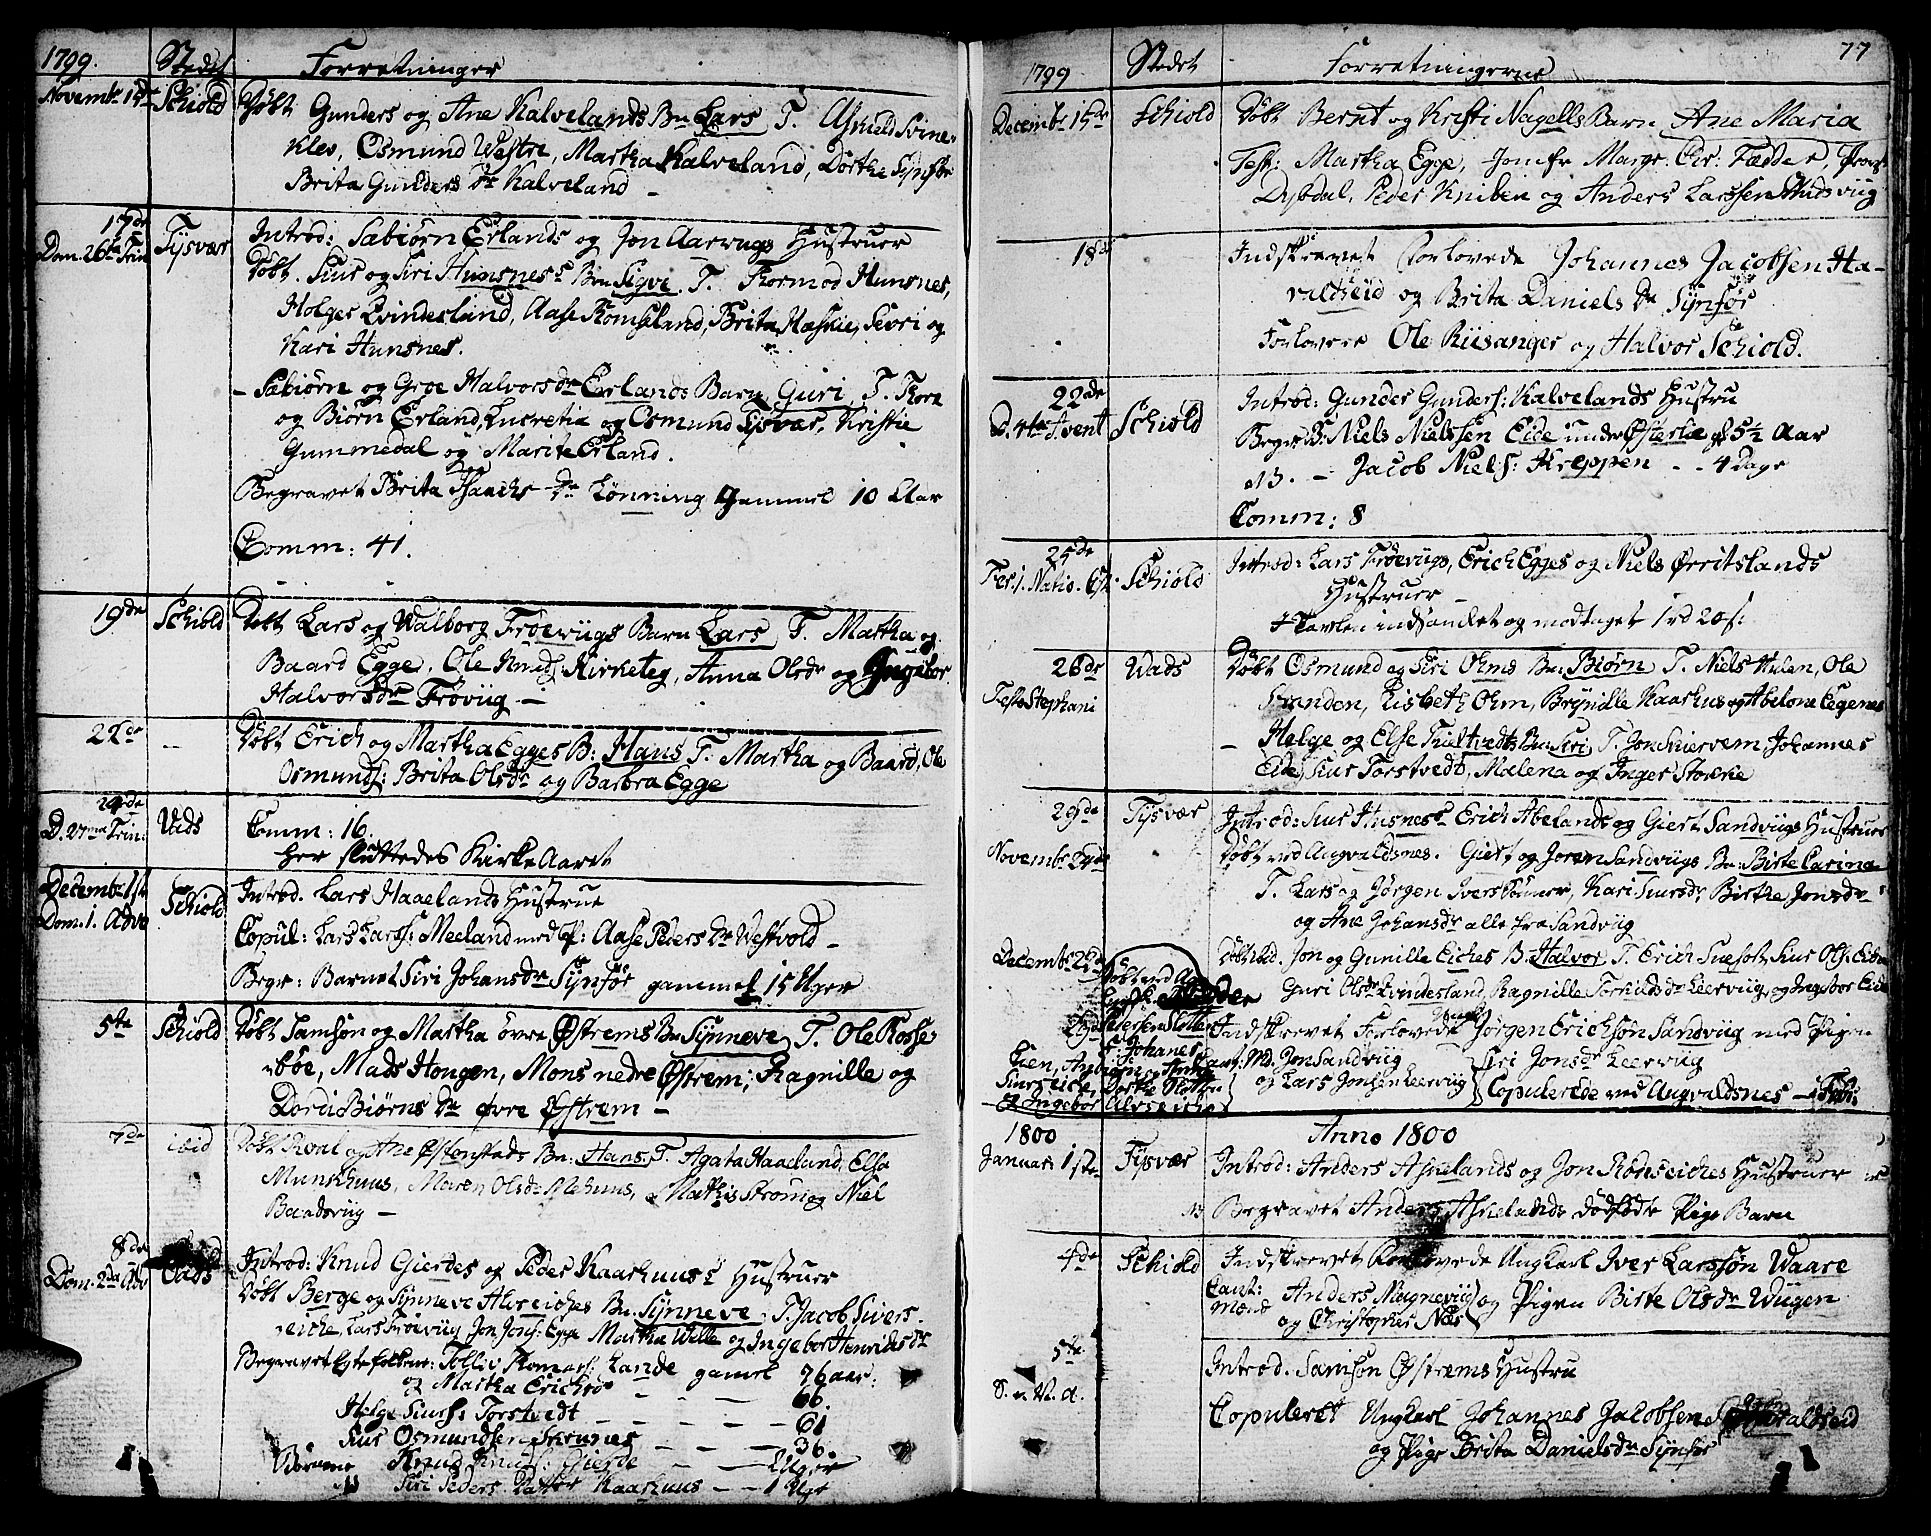 1799. Stedet Forretninger
Novembr 15de Schiold Döbt Gunders og Ane Kalvelands Bn Lars T. Asvield Svine-
klev, Osmund Westre, Martha Kalveland, Dorthe Synför
Brita Gunders Dr Kalveland –
17de Dom. 26ta Trin Tysvær Introd: Sabiörn Erlands og Jon Aarvugs Hustruer
Döbt. Siur og Siri Hunsness Bn Sigve. T. Thormod Hunsnes,
Holger Qvindesland, Aase Romseland, Brita Hæskie, Sevri og
Kari Hunsnes.
– Sabiörn og Groe Halvorsdr Erlands Barn Guri, T. Thore
og Biörn Erland, Lucretia og Osmund Tysvær, Kristie
Gummedal og Marite Erland.
Begravet Brita Isaachs Dr Lönning gammel 10 Aar
Comm: 41.
19de Schiold Döbt Lars og Walborg Fröevügs Barn Lars T. Martha og
Baard Egge, Ole Knuds: Kirketeg, Anna Olsdr og Ingebor
Halvorsdr Frövüg –
22de – Döbt Erich og Martha Egges B: Hans T. Martha og Baard, Ole
Osmunds: Brita Olsdr og Barbra Egge
24de D. 27ma Trin: Vads Comm: 16.
her sluttedes Kirke Aaret
Decembr 1ste Dom. 1. Adve Schiold Introd. Lars Haaelands Hustrue
Copul: Lars Larss: Meeland med P: Aase Peders Dr Westvold –
Begr: Barnet Siri Johansdr Synför gammel 15 Uger
5te Schiold Döbt Samson og Martha övre Østrems Bn Synneve, T. Ole Rosse-
böe, Mads Hongen, Mons nedre Østrem, Ragnille og
Dordi Biörns Dr övre Østrem –
7de ibid Döbt Roal og Ane Østenstads Bn: Hans, T. Agata Haaeland, Elsa
Munkhuus, Maren Olsdr Mehuus, Mathis Strom og Niel
Baadsvüg –
8de Dom. 2da Adv Vads Introd: Knud Gierdes og Peder Kaarhuuss Hustruer
Döbt Berge og Synneve Alvseiches Bn: Synneve. T. Jacob Sivers-
eiche, Lars Fröevüg Jon Jons: Egge Martha Wille og Ingebor Henrichsdr
Begravet Egtefolkene: Tolliv Thomas: Lande gamel 76 aar:
og Martha Erichsdr – – – 66.
Helge Siurs: Torstvedt – – – 61
Siur Osmundsen Skrunes – – – 36.
Vibrerne Knud Knuds: Gierde – – 2 Uger
13 Siri Peders Datter Kaarhuus – – 1 Uge
1799 Stedet Forretningerne 77
Decembr 15de Schiold Döbt Bernt og Kristi Nagells Barn Ane Maria
Test: Martha Egge, Jomfr Margr. Chr: Fædder, Provst
Dybdal, Peder Kniben og Anders Larssen Hudsvüg
18de Indskrevet Forlovede Johannes Jacobsen Ha-
valdseid og Brita Daniels Dr Synför
Forlovere Ole Riisanger og Halvor Schiold.
22de D. 4ta Avent Schiold Introd: Gunder Gunders: Kalvelands Hustru
Begr. B: Niels Nielssen Eide under Østerløe gl 5½ Aar
13. – Jacob Niels: Kreppen – – 4 Dage
Comm: 8
25de Fer: 1. Nativ. Schiold Introd: Lars Fröevügs, Erich Egges og Niels Ørritslands
Hustruer –
I Tavlen indsamlet og modtaget 1 rd 20 s:
26de Festo Stephani Vads Döbt Osmund og Siri Ohms Bn: Biörn T. Niels Hulen, Ole
Stranden, Lisbeth Ohm, Brynille Kaarhus og Abelone Egenes
– Helge og Else Tveitvedts Bn: Siri, T. Jon Skiervem Johannes
Eide, Siur Torstvedt, Malena og Inger Storke
29de Tysvær Introd: Siur Husness Erich Abelands og Giert Sandvügs Hustruer
Novembr 29de Döbt ved Augvaldsnes. Giert og Joren Sandvügs Bn: Birte Carina
T. Lars og Jörgen Ivers Sönner, Kari Siursdr Birthe Jonsdr
og Ane Johansdr alle fra Sandvüg
Decembr Döbt ibid. Jon og Gunille Eiches B: Halvor T. Erich Suesot, Siur Ols: Eike
Guri Olsdr Qvindesland, Ragnille Torkildsdr Leervüg, og Ingebor Eide
Indskrevet Forlovede Jörgen Erichsön Sandvüg med Pigen
Caut: Md. Jon Sandvüg Siri Jonsdr Leervüg
og Lars Jonsen Leervüg Copulerede ved Augvaldsnes –
1800 Anno 1800
Januari 1ste Tysvær Introd: Anders Askelands og Jon Rödseiches Hustruer
13 Begravet Anders Askelands dödfödte Pige Barn
4de Schiold Indskrevet Forlovede Ungkarl Iver Larssön Waare
Caut: mænd Anders Magnevüg og Pigen Birte Olsdr Wügen
og Christopher Næs
5te Introd. Samson Østrems Hustru
S. e. N. A. Copuleret Ungkarl Johannes Jacobsen Havaldseid
og Pige Brita Danielsdr Synför